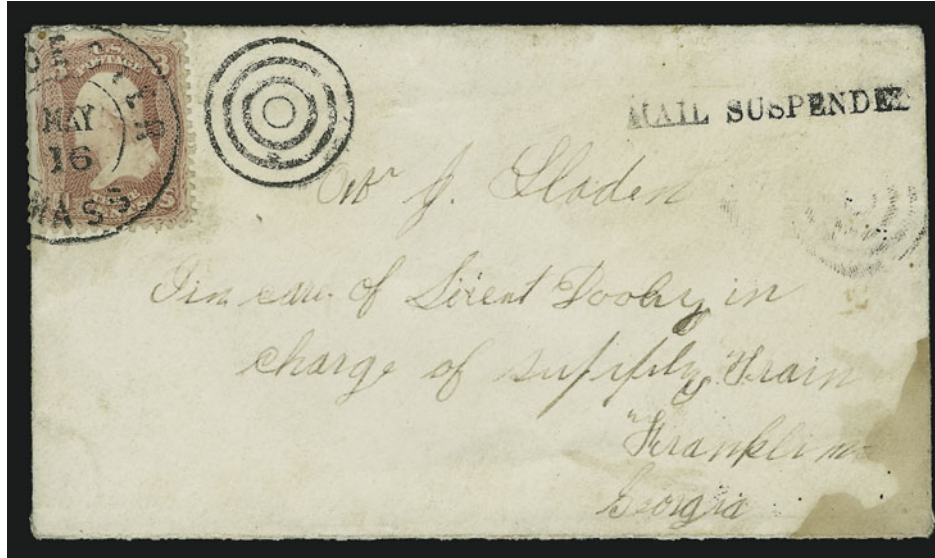 U.S.
POSTAGE
3 3
MAY
16
MASS
MAIL SUSPENDED
Mr J. Sladen
In care of Lieut Dooly in
charge of supply Train
Franklin
Georgia